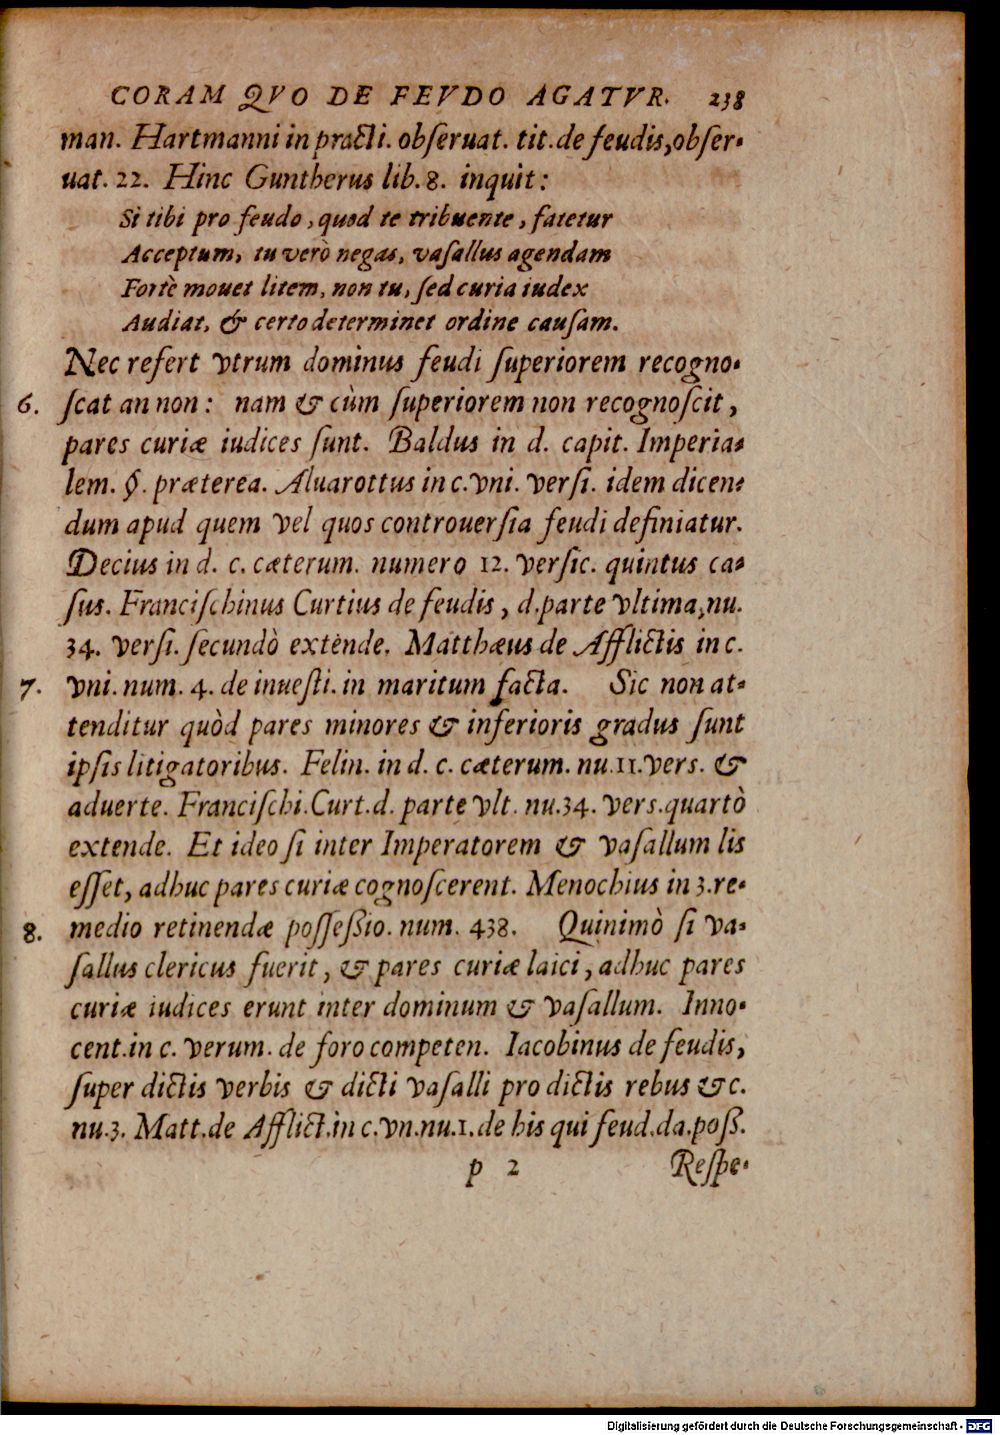 CORAM QVO DE FEVDO AGATVR. 238
man. Hartmanni in practi. obſeruat. tit. de feudis, obſer-
uat. 22. Hinc Guntherus lib. 8. inquit:
Si tibi pro feudo, quod te tribuente, fatetur
Acceptum, tu verò negas, vaſallus agendam
Fortè mouet litem, non tu, ſed curia iudex
Audiat, & certo determinet ordine cauſam.
Nec refert vtrum dominus feudi ſuperiorem recogno-
6. ſcat an non: nam & cùm ſuperiorem non recognoſcit,
pares curiæ iudices ſunt. Baldus in d. capit. Imperia-
lem. §. præterea. Aluarottus in c. vni. verſi. idem dicen-
dum apud quem vel quos controuerſia feudi definiatur.
Decius in d. c. cæterum. numero 12. verſic. quintus ca-
ſus. Franciſchinus Curtius de feudis, d. parte vltima, nu.
34. verſi. ſecundò extende. Matthæus de Afflictis in c.
7. vni. num. 4. de inueſti. in maritum facta. Sic non at-
tenditur quòd pares minores & inferioris gradus ſunt
ipſis litigatoribus. Felin. in d. c. cæterum. nu. 11. verſ. &
aduerte. Franciſchi. Curt. d. parte vlt. nu. 34. verſ. quartò
extende. Et ideo ſi inter Imperatorem & vaſallum lis
eſſet, adhuc pares curiæ cognoſcerent. Menochius in 3. re-
8. medio retinendæ poſſeßio. num. 438. Quinimò ſi va-
ſallus clericus fuerit, & pares curiæ laici, adhuc pares
curiæ iudices erunt inter dominum & vaſallum. Inno-
cent. in c. verum. de foro competen. Iacobinus de feudis,
ſuper dictis verbis & dicti vaſalli pro dictis rebus &c.
nu. 3. Matt. de Afflict. in c. vn. nu. 1. de his qui feud. da. poß.
p 2 Reſpe-
Digitalisierung gefördert durch die Deutsche Forschungsgemeinschaft - DFG